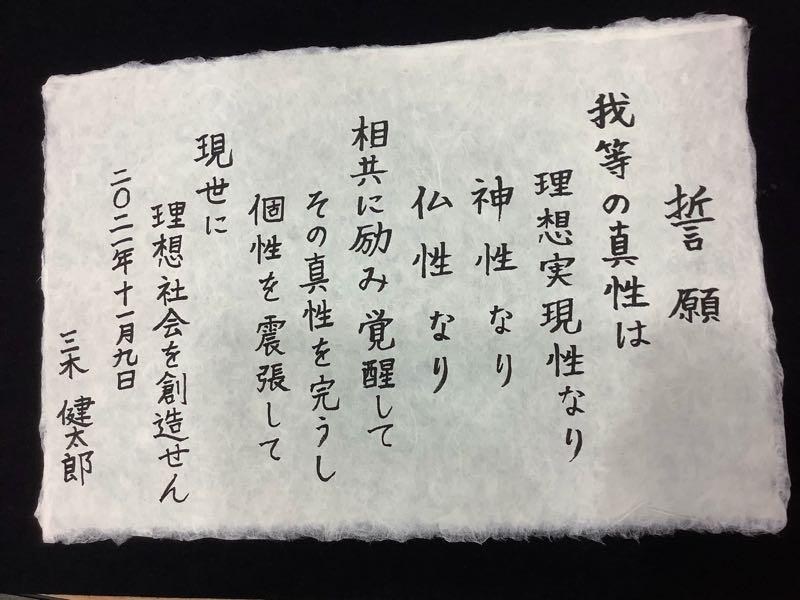 誓願
我等の真性は
理想実現性なり
神性なり
仏性なり
相共に励み覚醒して
その真性を完うし
個性を震張して
現世に
理想社会を創造せん
二〇二一年十一月九日
三木健太郎